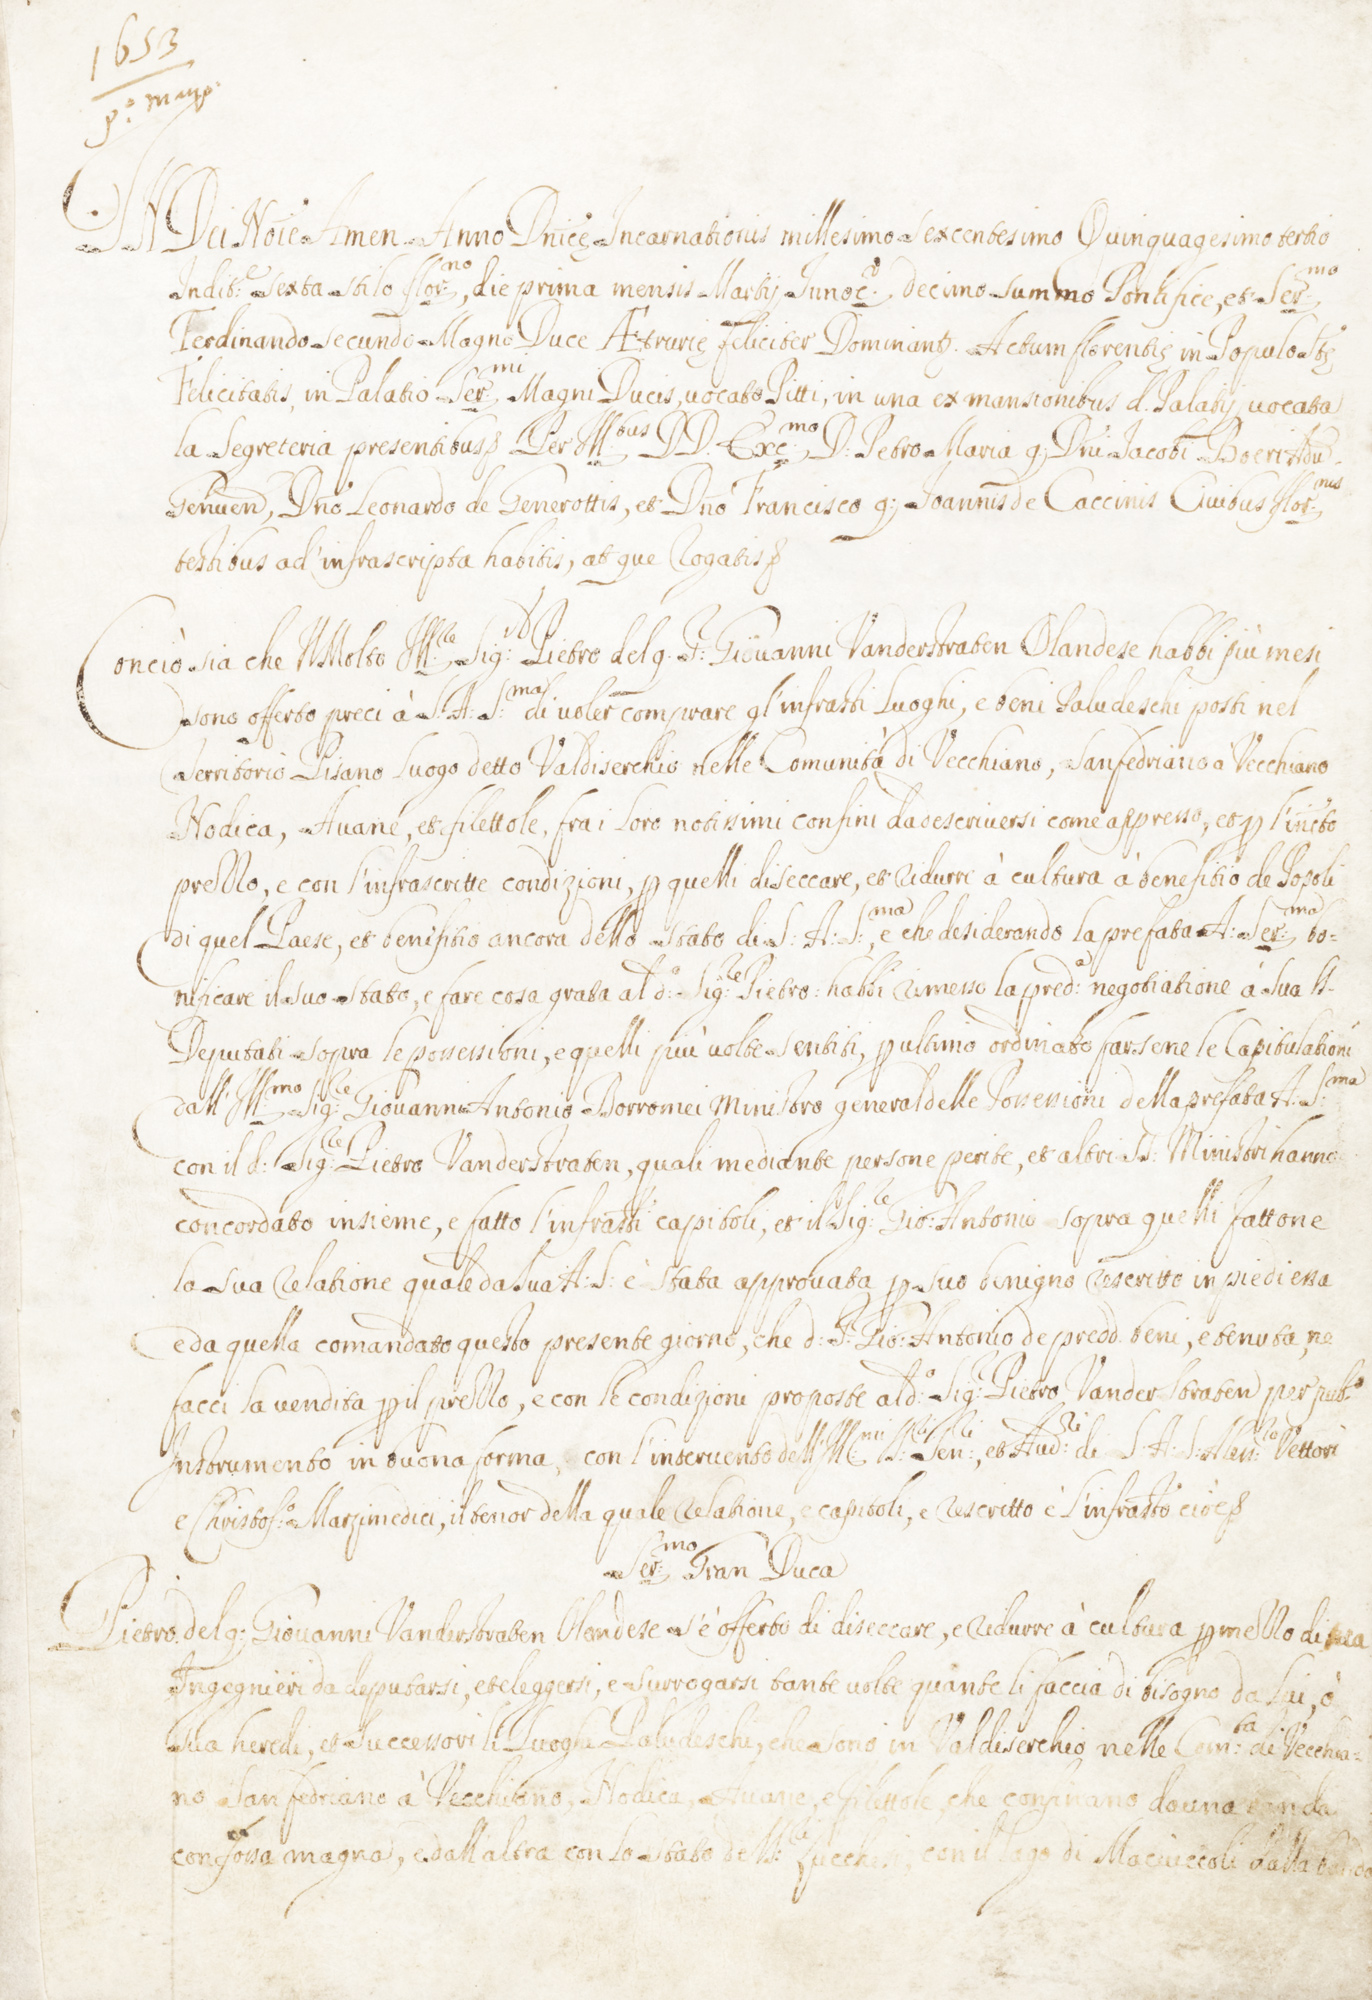 1653
p.º Marzo
IN Dei Nõie Amen Anno Dnicę Incarnationis millesimo sexcentesimo Quinquagesimo tertio
Indit:e sexta stilo flor:no, die prima mensis Martij Innoc:o decimo summo Pontifice, et Ser:mo
Ferdinando secundo Magno Duce Ætrurię feliciter Dominantę. Actum florentię in Populo Stę
Felicitatis, in Palatio Ser:mi Magni Ducis, uocato Pitti, in una ex mansionibus d. Palatij uocata
la Segreteria presentibus Per Ill:bus DD. Exc:mo D: Petro Maria q: Dñi Jacobi Boeri Adu:
Genuen, Dño Leonardo de Generottis, et Dño Francisco q: Joannis de Caccinis Ciuibus flor:nis
testibus ad infrascripta habitis, atque Rogatis
Conciò sia che Il Molto Ill:re Sig:r Pietro del q. S:r Giouanni Vanderstraten Olandese habbi più mesi
sono offerto preci à S: A: S:ma di uoler comprare gl'infratti Luoghi, e beni Paludeschi posti nel
Territorio Pisano luogo detto Valdiserchio nelle Comunità di Vecchiano, Sanfedriano à Vecchiano
Nodica, Auane, et filettole, fra i loro notissimi confini da descriuersi come appresso, et p l'infrto
prezzo, e con l'infrascritte condizioni, p quelli diseccare, et ridurre à cultura à benefitio de Popoli
di quel Paese, et benifitio ancora dello Stato di S: A: S:ma, e che desiderando la prefata A: Ser:ma bo=
nificare il suo stato, e fare cosa grata al d:o Sig:re Pietro: habbi rimesso la pred:a negotiatione à sua SS.
Deputati sopra le possessioni, e quelli più uolte sentiti, p ultimo ordinato farsene le Capitulationi
dall' Ill:mo Sig:re Giouanni Antonio Borromei Ministro general delle Possessioni della prefata A: S:ma
con il d: Sig:re Pietro Vanderstraten, quali mediante persone perite, et altri SS: Ministri hanno
concordato insieme, e fatto l'infratti capitoli, et il Sig:re Gio: Antonio sopra quelli fattone
la sua relatione quale da Sua A: S: è stata approuata p suo benigno rescritto in piedi essa
e da quella comandato questo presente giorno, che d: S:r Gio: Antonio de predd. beni, e tenuta, ne
facci la vendita p il prezzo, e con le condizioni proposte al d:o Sig:r Pietro Vander straten per pub:o
Instrumento in buona forma, con l'interuento dell' Ill:mi SS:ri Sen:ri, et Aud:ri di S: A: S: Aless:ro Vettori
e Christof:o Marzimedici, il tenor della quale relatione, e capitoli, e rescritto è l'infratto cioè
Ser:mo Gran Duca
Pietro del q: Giouanni Vanderstraten Olandese s'è offerto di diseccare, e ridurre à cultura p mezzo di sua
Ingegnieri da deputarsi, et eleggersi, e surrogarsi tante uolte quante li faccia di bisogno da lui, ò
sua heredi, et Successori li Luoghi Paludeschi, che sono in Valdiserchio nelle Com:ta di Vecchia=
no San fedriano à Vecchiano, Nodica, Auane, e filettole, che confinano da una banda
con fossa magna, e dall'altra con lo stato de SS:ri Lucchesi, con il lago di Maciuccoli dalla banda